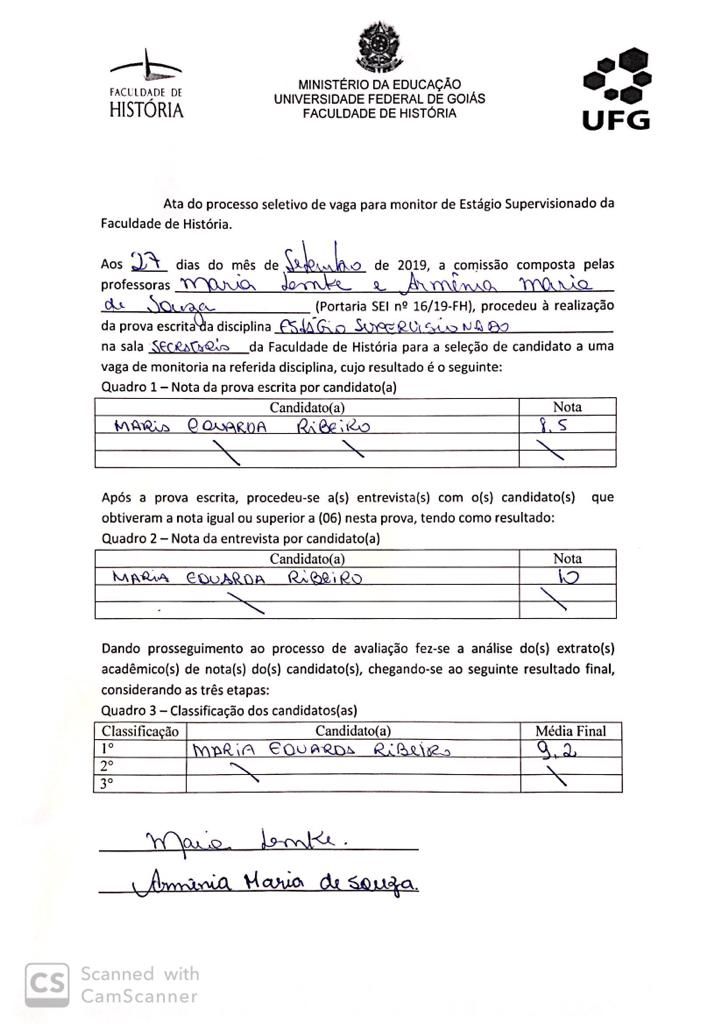 FACULDADE DE
HISTÓRIA
MINISTÉRIO DA EDUCAÇÃO
UNIVERSIDADE FEDERAL DE GOIÁS
FACULDADE DE HISTÓRIA
UFG
Ata do processo seletivo de vaga para monitor de Estágio Supervisionado da
Faculdade de História.
Aos 27 dias do mês de Setembro de 2019, a comissão composta pelas
professoras Maria Lemke e Armênia Maria
de Souza (Portaria SEI nº 16/19-FH), procedeu à realização
da prova escrita da disciplina ESTÁGIO SUPERVISIONADO
na sala SECRETARIA da Faculdade de História para a seleção de candidato a uma
vaga de monitoria na referida disciplina, cujo resultado é o seguinte:
Quadro 1 – Nota da prova escrita por candidato(a)
Candidato(a) Nota
MARIA EDUARDA RIBEIRO 8,5
Após a prova escrita, procedeu-se a(s) entrevista(s) com o(s) candidato(s) que
obtiveram a nota igual ou superior a (06) nesta prova, tendo como resultado:
Quadro 2 – Nota da entrevista por candidato(a)
Candidato(a) Nota
MARIA EDUARDA RIBEIRO 10
Dando prosseguimento ao processo de avaliação fez-se a análise do(s) extrato(s)
acadêmico(s) de nota(s) do(s) candidato(s), chegando-se ao seguinte resultado final,
considerando as três etapas:
Quadro 3 – Classificação dos candidatos(as)
Classificação Candidato(a) Média Final
1º MARIA EDUARDA RIBEIRO 9,2
2º
3º
Maria Lemke.
Armênia Maria de Souza.
CS Scanned with
CamScanner